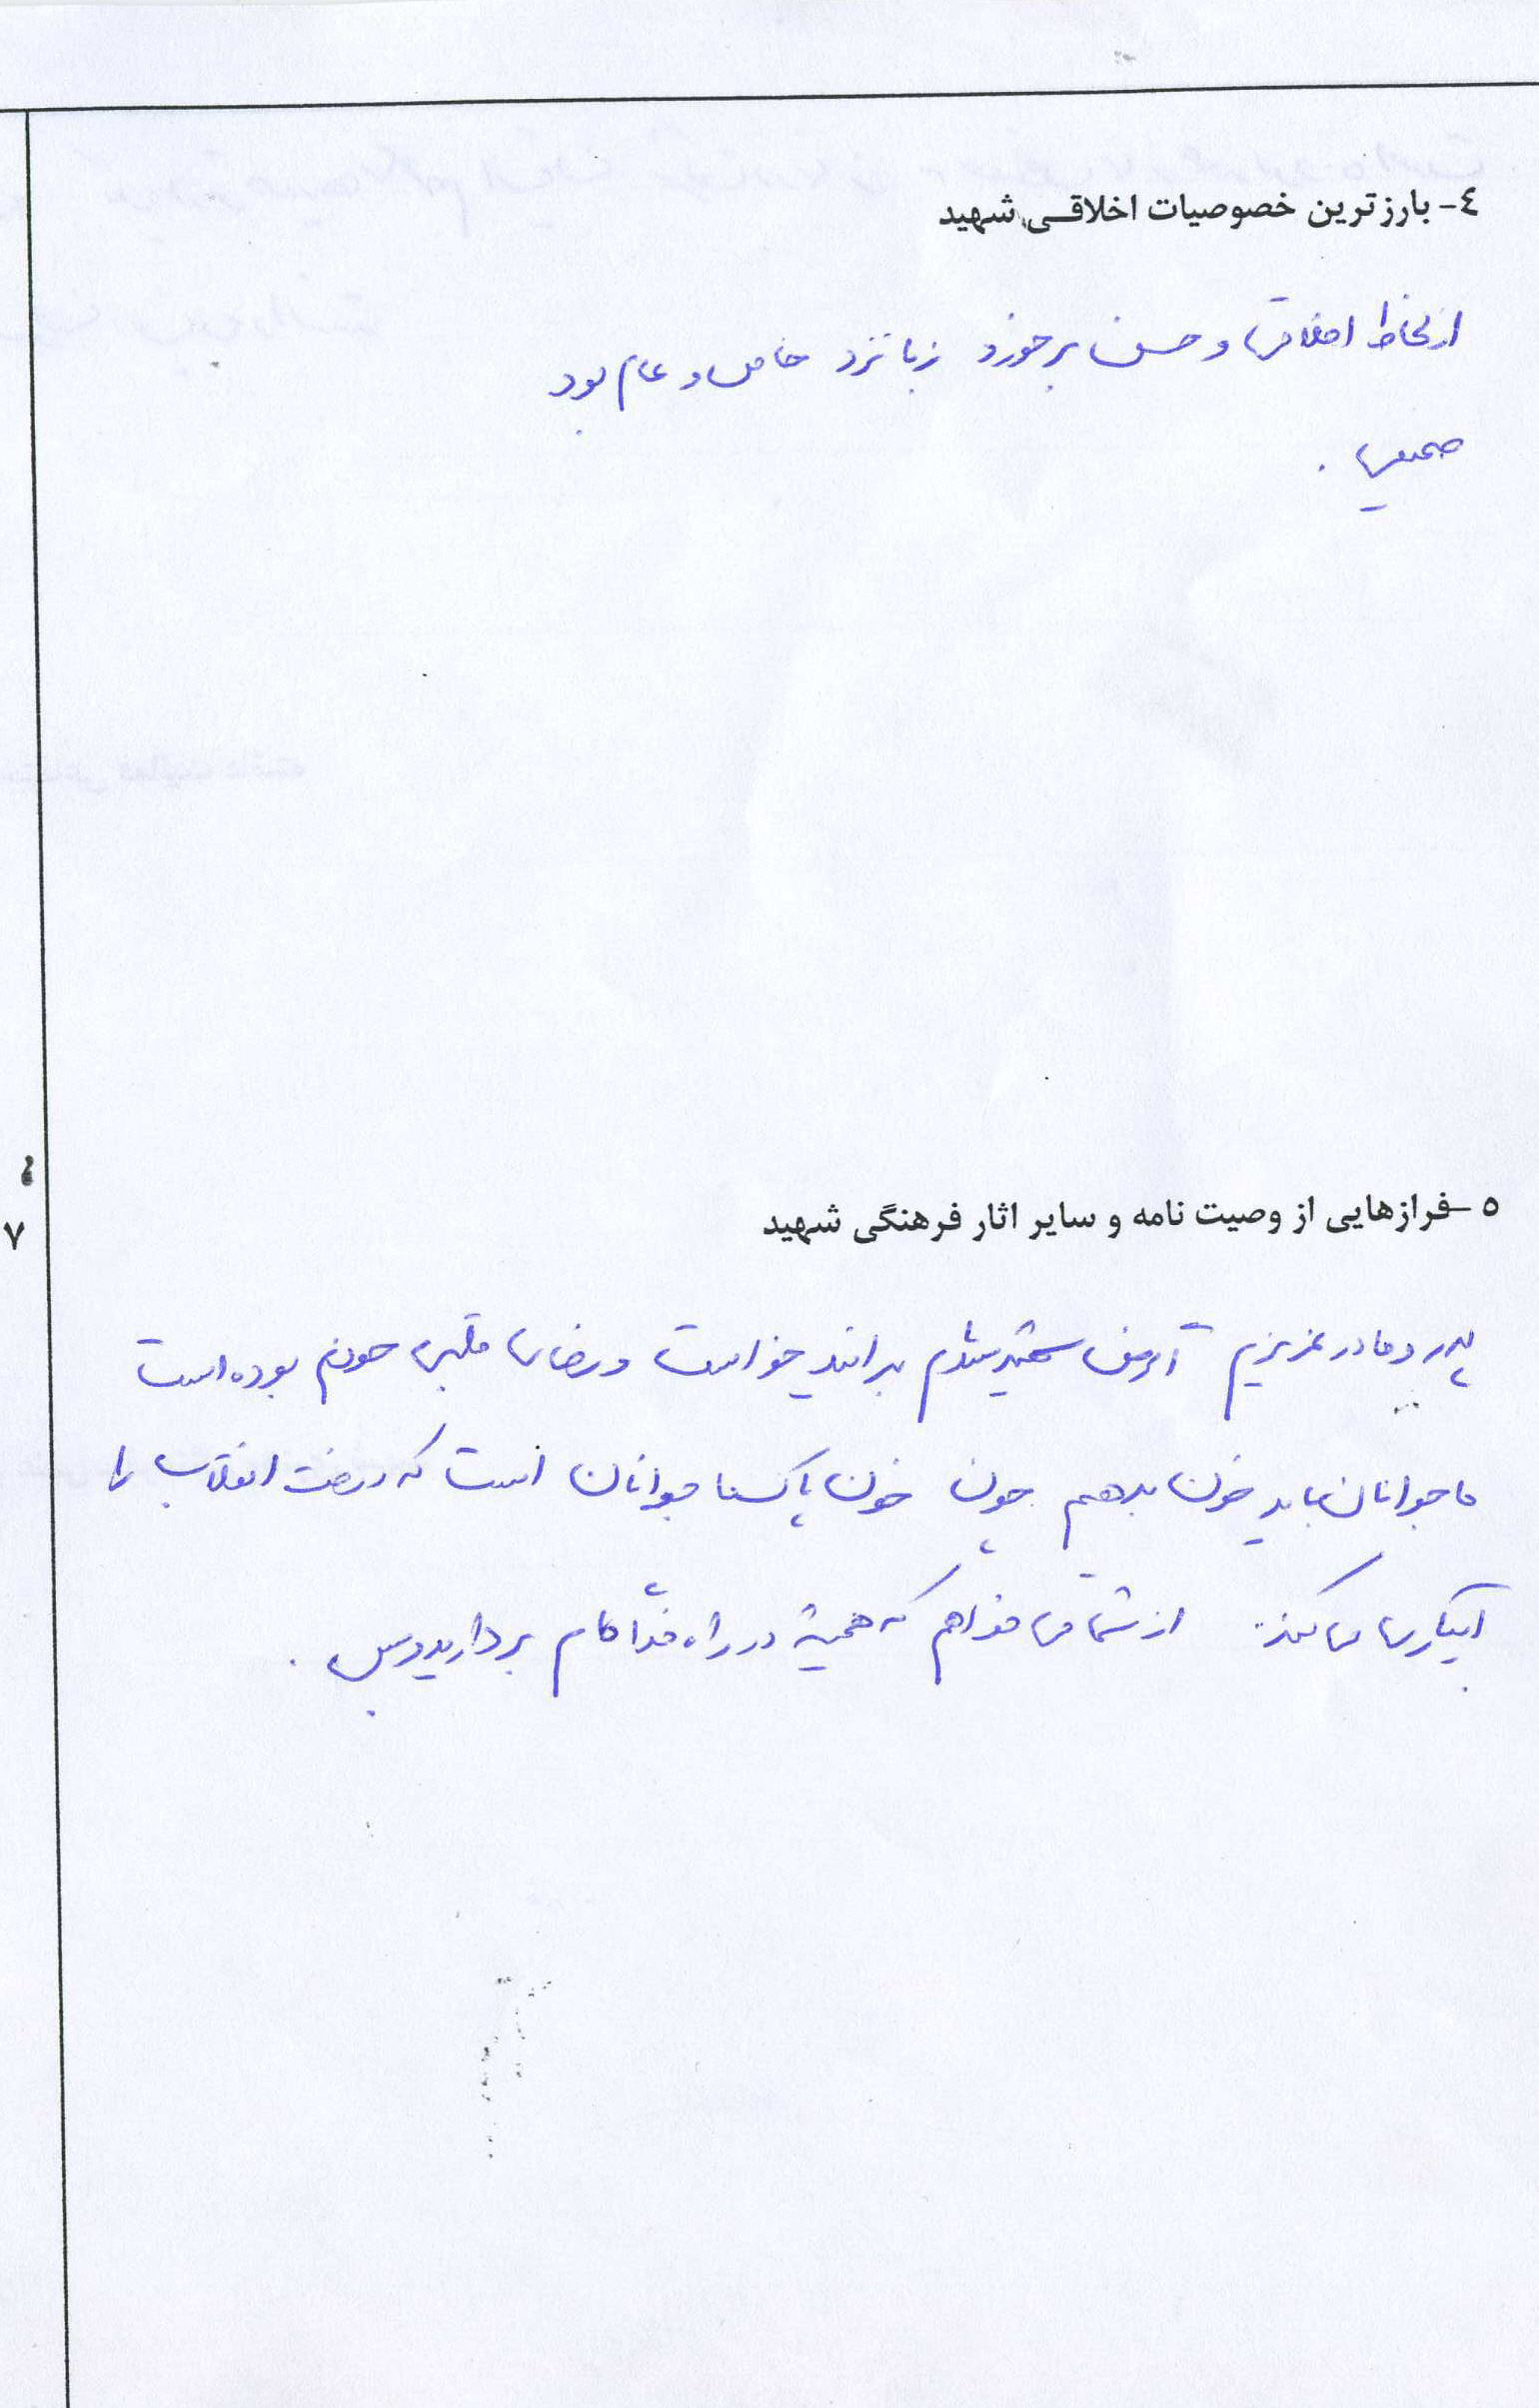 ٤- بارزترین خصوصیات اخلاقی شهید
از لحاظ اخلاقی و حسن برخورد زبانزد خاص و عام بود
صمیمی .
٥ -فرازهایی از وصیت نامه و سایر اثار فرهنگی شهید
٧
پدر و مادر عزیزم اگر من شهید شدم بدانید خواست و رضای قلبی خودم بوده است
ما جوانان باید خون بدهیم چون خون پاک ما جوانان است که درخت انقلاب را
آبیاری می کند از شما می خواهم که همیشه در راه خدا گام بردارید و بس .